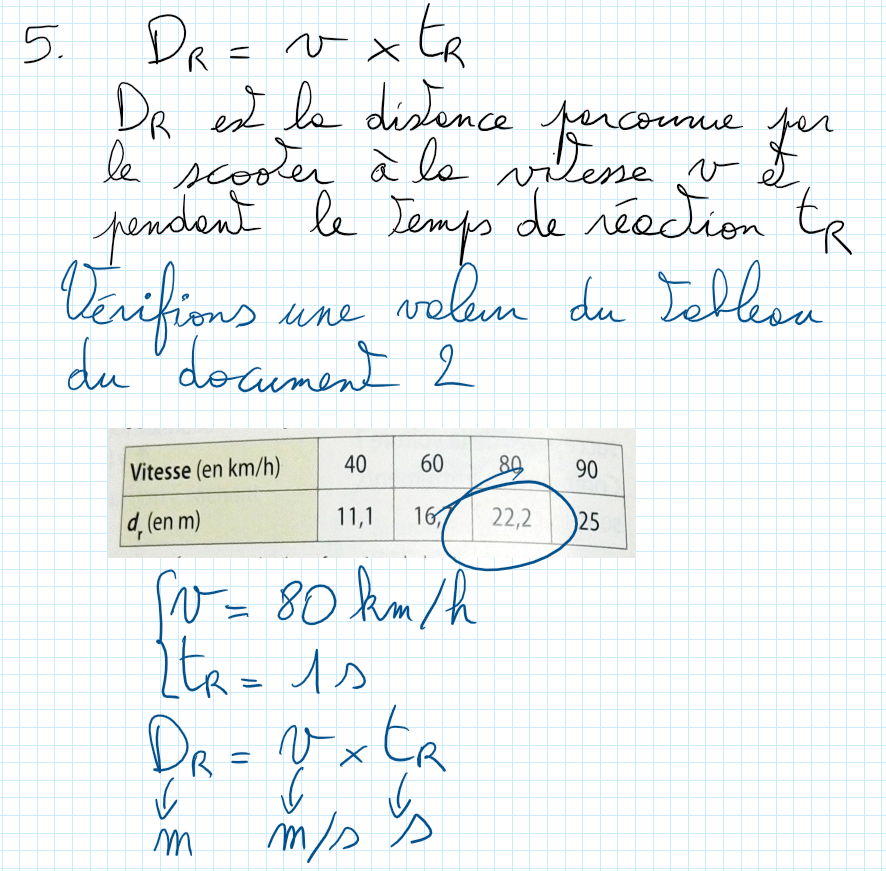 5. D_R = v × t_R
D_R est la distance parcourue par
le scooter à la vitesse v et
pendant le temps de réaction t_R
Vérifions une valeur du tableau
du document 2
Vitesse (en km/h) 40 60 80 90
d_r (en m) 11,1 16,7 22,2 25
v = 80 km/h
t_R = 1 s
D_R = v × t_R
m m/s s